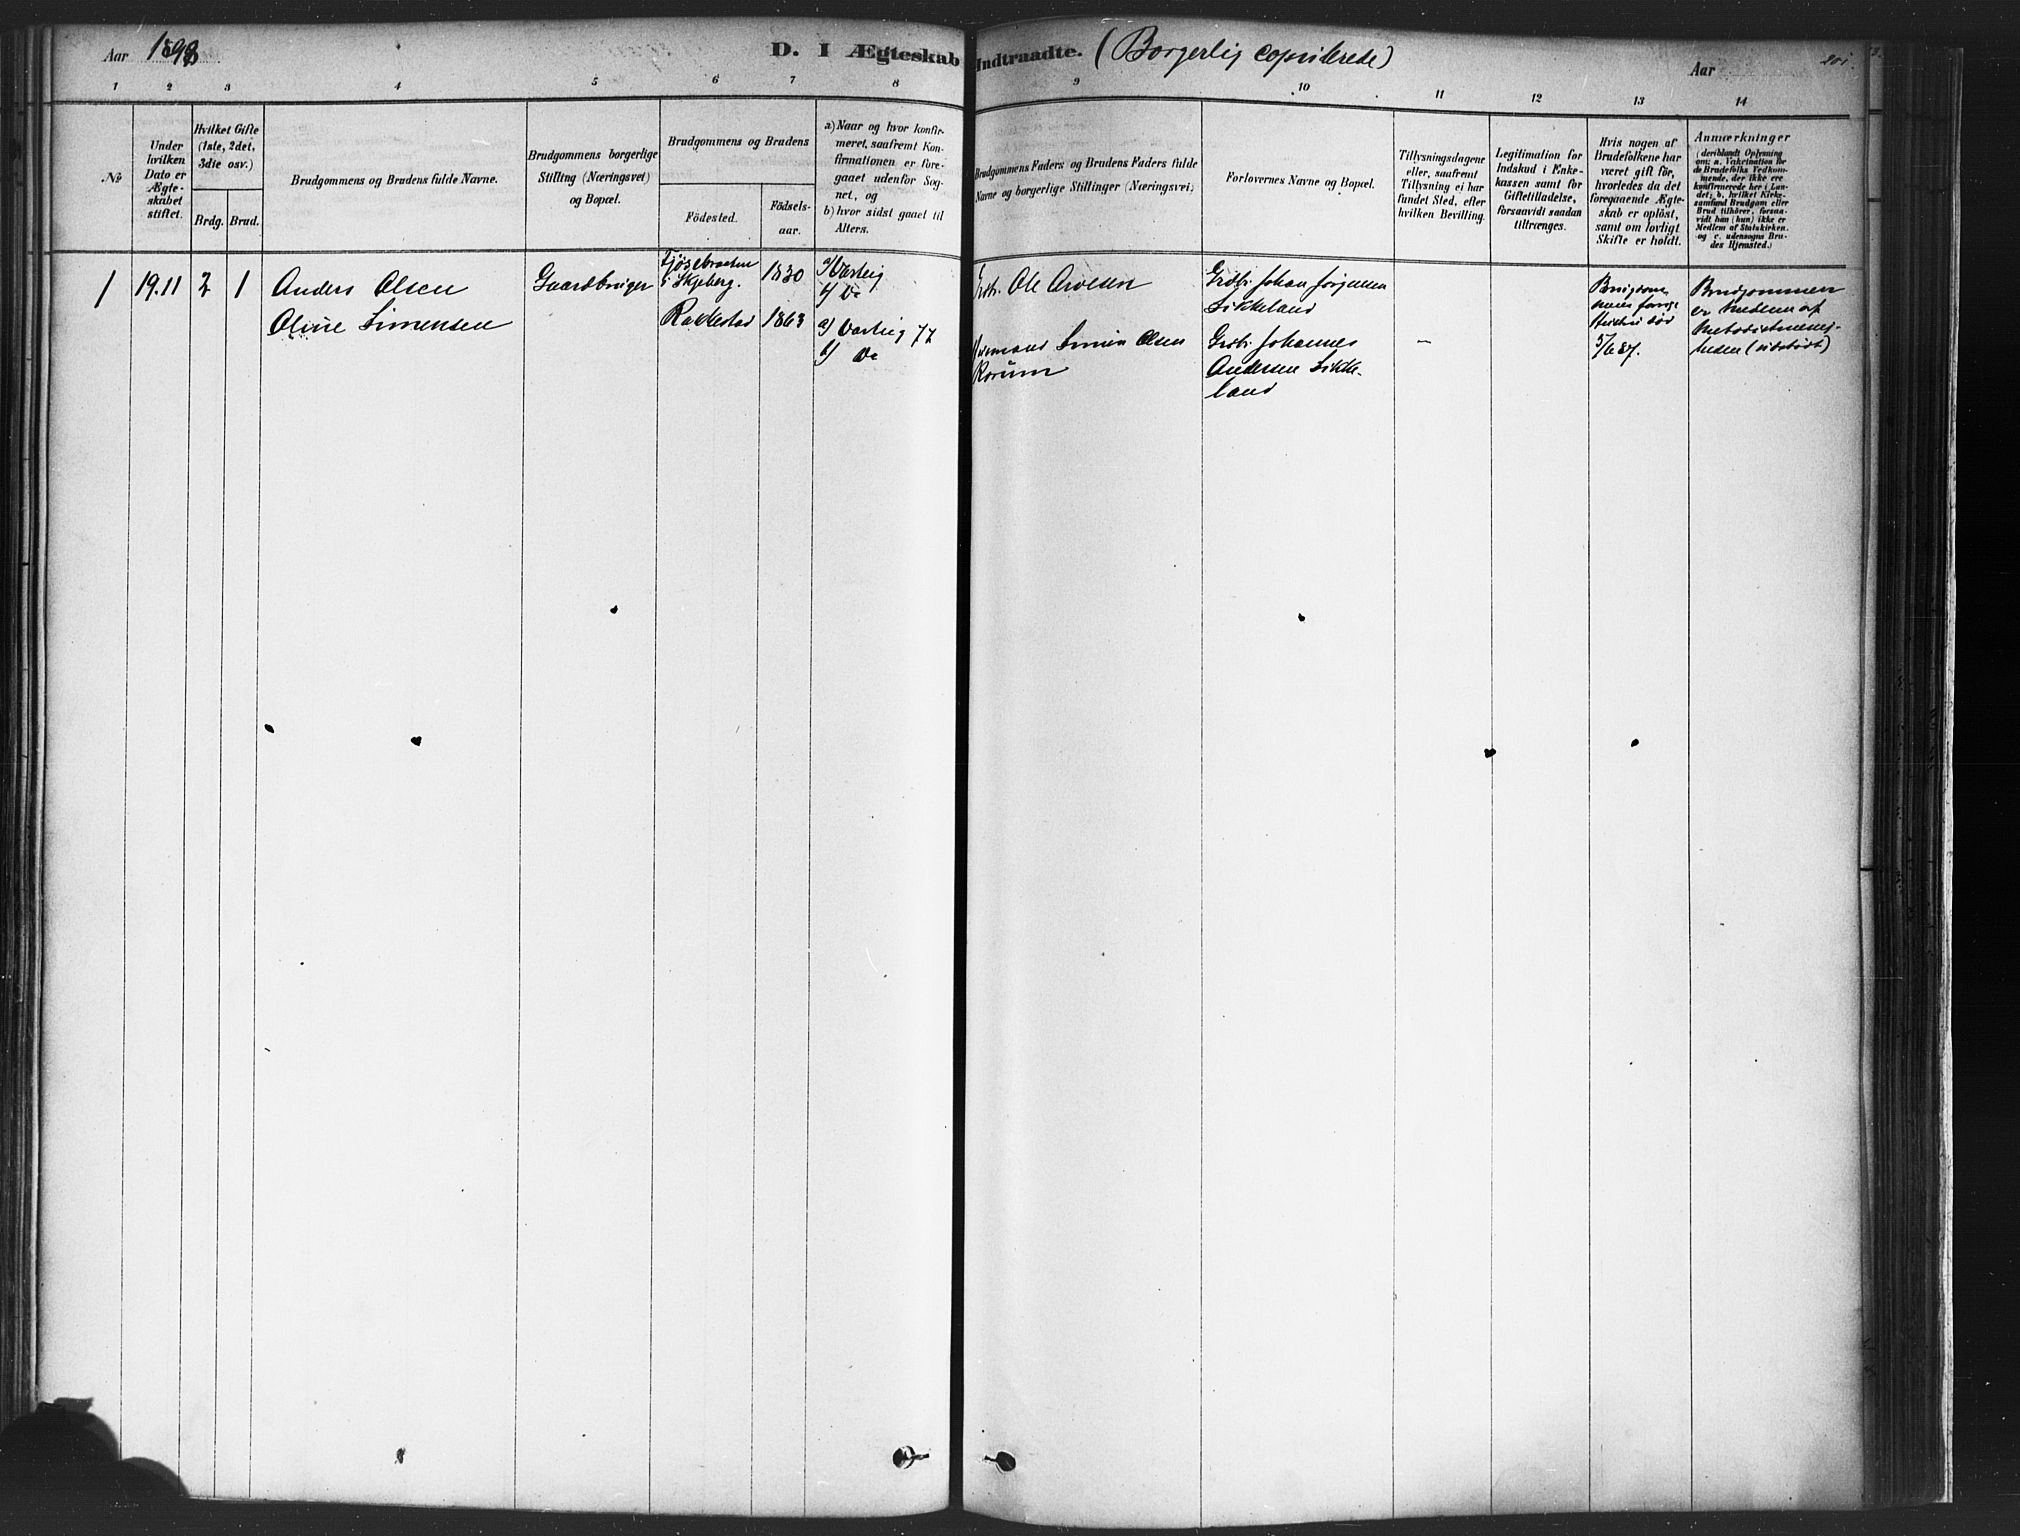 Aar 1898
D. I Ægteskab Indtraadte. (Borgerlig copulerede)
Aar
201.
1 2 3 4 5 6 7 8 9 10 11 12 13 14
No
Under hvilken Dato er Ægteskabet stiftet.
Hvilket Gifte (1ste, 2det, 3die osv.)
Brdg. Brud.
Brudgommens og Brudens fulde Navne.
Brudgommens borgerlige Stilling (Næringsvei) og Bopæl.
Brudgommens og Brudens
Födested.
Födsels-aar.
a) Naar og hvor konfirmeret, saafremt Konfirmationen er foregaaet udenfor Sognet, og
b) hvor sidst gaaet til Alters.
Brudgommens Faders og Brudens Faders fulde Navne og borgerlige Stillinger (Næringsvei).
Forlovernes Navne og Bopæl.
Tillysningsdagene eller, saafremt Tillysning ei har fundet Sted, efter hvilken Bevilling.
Legitimation for Indskud i Enkekassen samt for Giftetilladelse, forsaavidt saadan tiltrænges.
Hvis nogen af Brudefolkene har været gift för, hvorledes da det foregaaende Ægteskab er oplöst, samt om lovligt Skifte er holdt.
Anmærkninger
(deriblandt Oplysning om: a. Vakcination for de Brudefolks Vedkommende, der ikke ere konfirmerede her i Landet; b. hvilket Kirkesamfund Brudgom eller Brud tilhörer, forsaavidt han (hun) ikke er Medlem af Statskirken. og c. udensogns Brudes Hjemsted.)
1
19.11
2
1
Anders Olsen
Oline Simensen
Gaardbruger
i Skjeberg.
Rakkestad
1830
1863
a) Varteig
b) Do
a) Varteig 77
b) Do
Ole
Simen Olsen
Grdbr. Johan Jörgensen
Sikkeland
Grdbr. Johannes
Andersen Sikke-
land
—
död
5/6 87.
Brudgommen
er Medlem af
Metodistmenig-
heden (udtraadt)